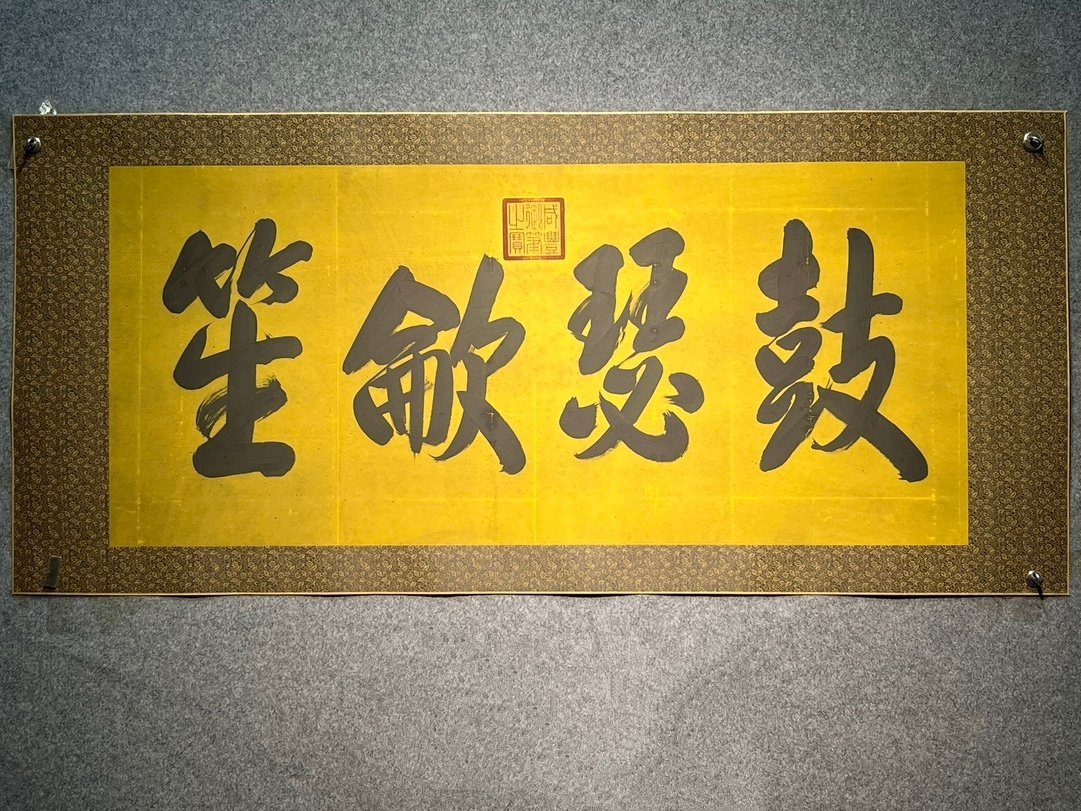 咸豐御筆之寶
鼓瑟龡笙